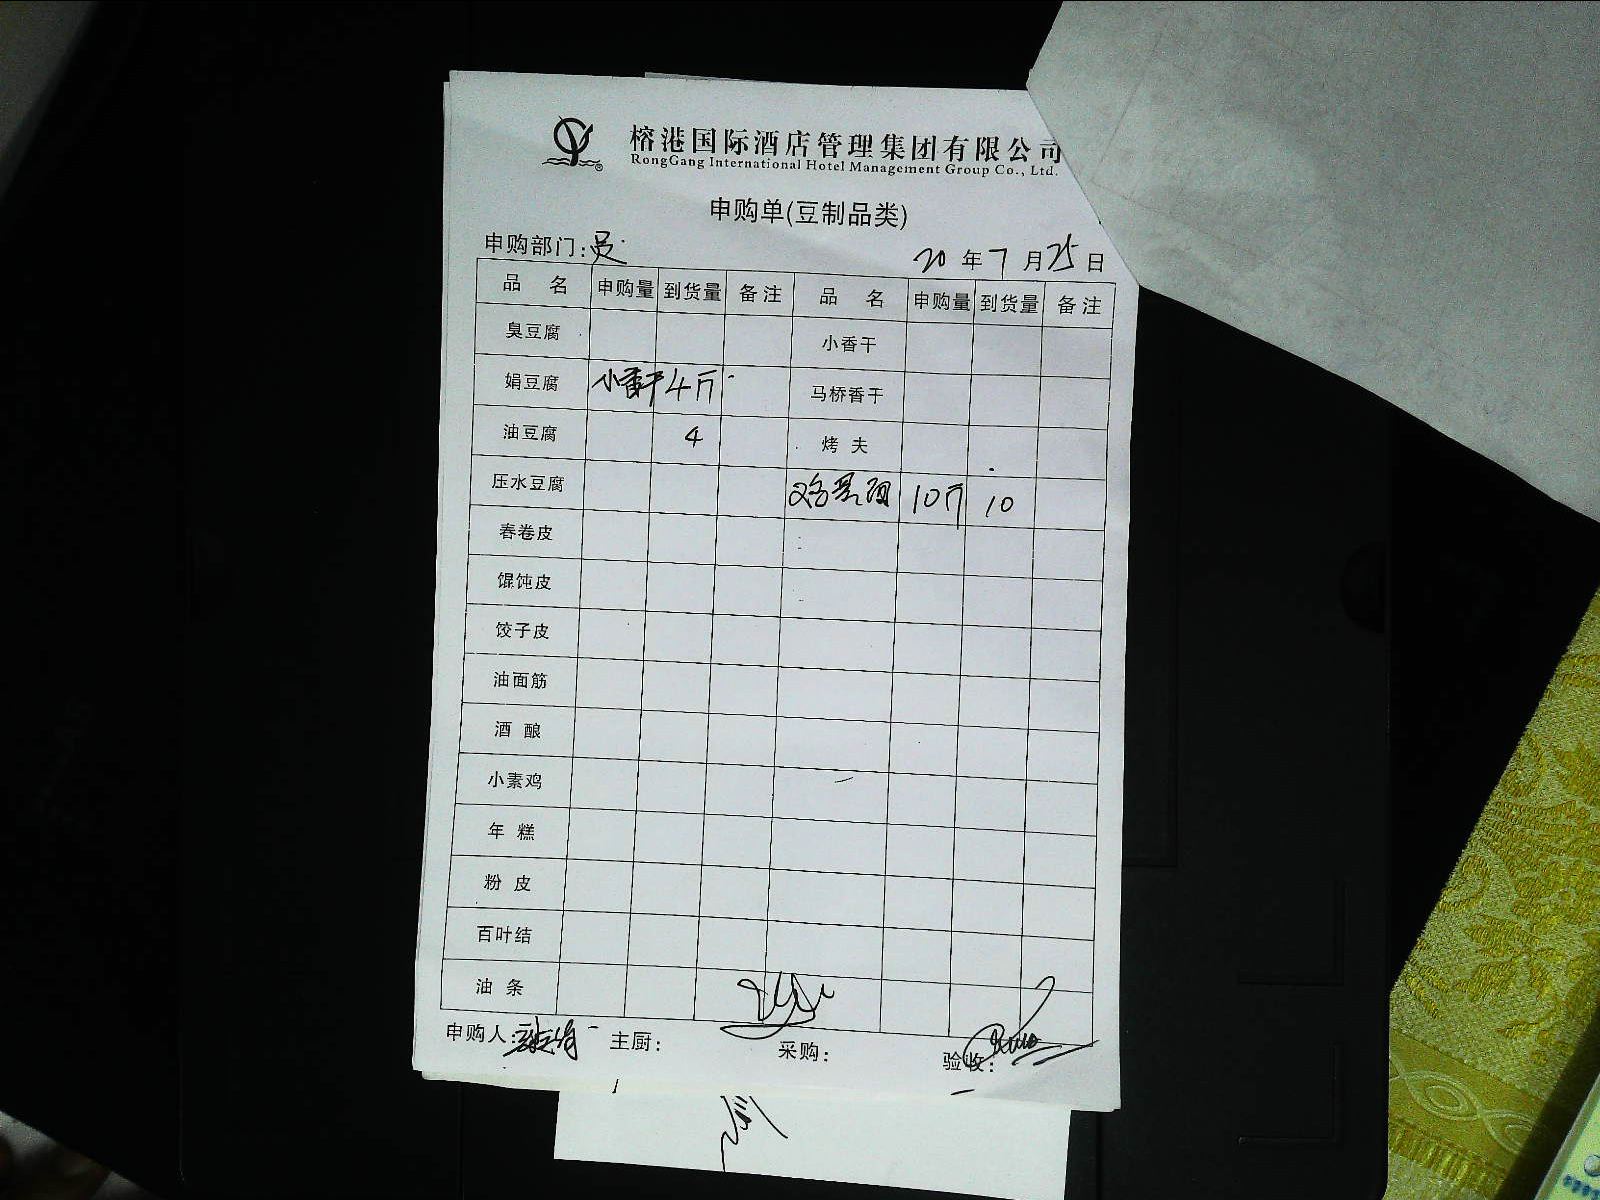 榕港国际酒店管理集团有限公司
RongGang International Hotel Management Group Co., Ltd.
申购单(豆制品类)
申购部门: 20年7月25日
品 名 申购量 到货量 备注 品 名 申购量 到货量 备注
臭豆腐 小香干
娟豆腐 小香干 4斤 马桥香干
油豆腐 4 烤 夫
压水豆腐 10斤 10
春卷皮
馄饨皮
饺子皮
油面筋
酒 酿
小素鸡
年 糕
粉 皮
百叶结
油 条
申购人: 主厨: 采购: 验收: